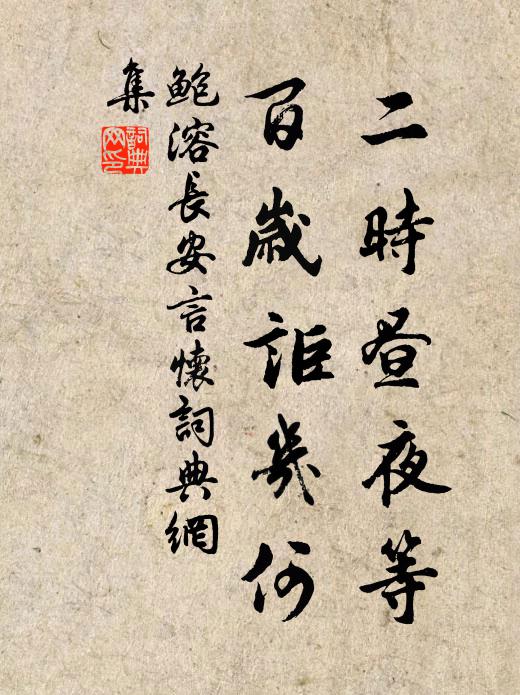 二時晝夜等
百歲詎幾何
鮑溶長安言懷詞典網
集
詞典網印